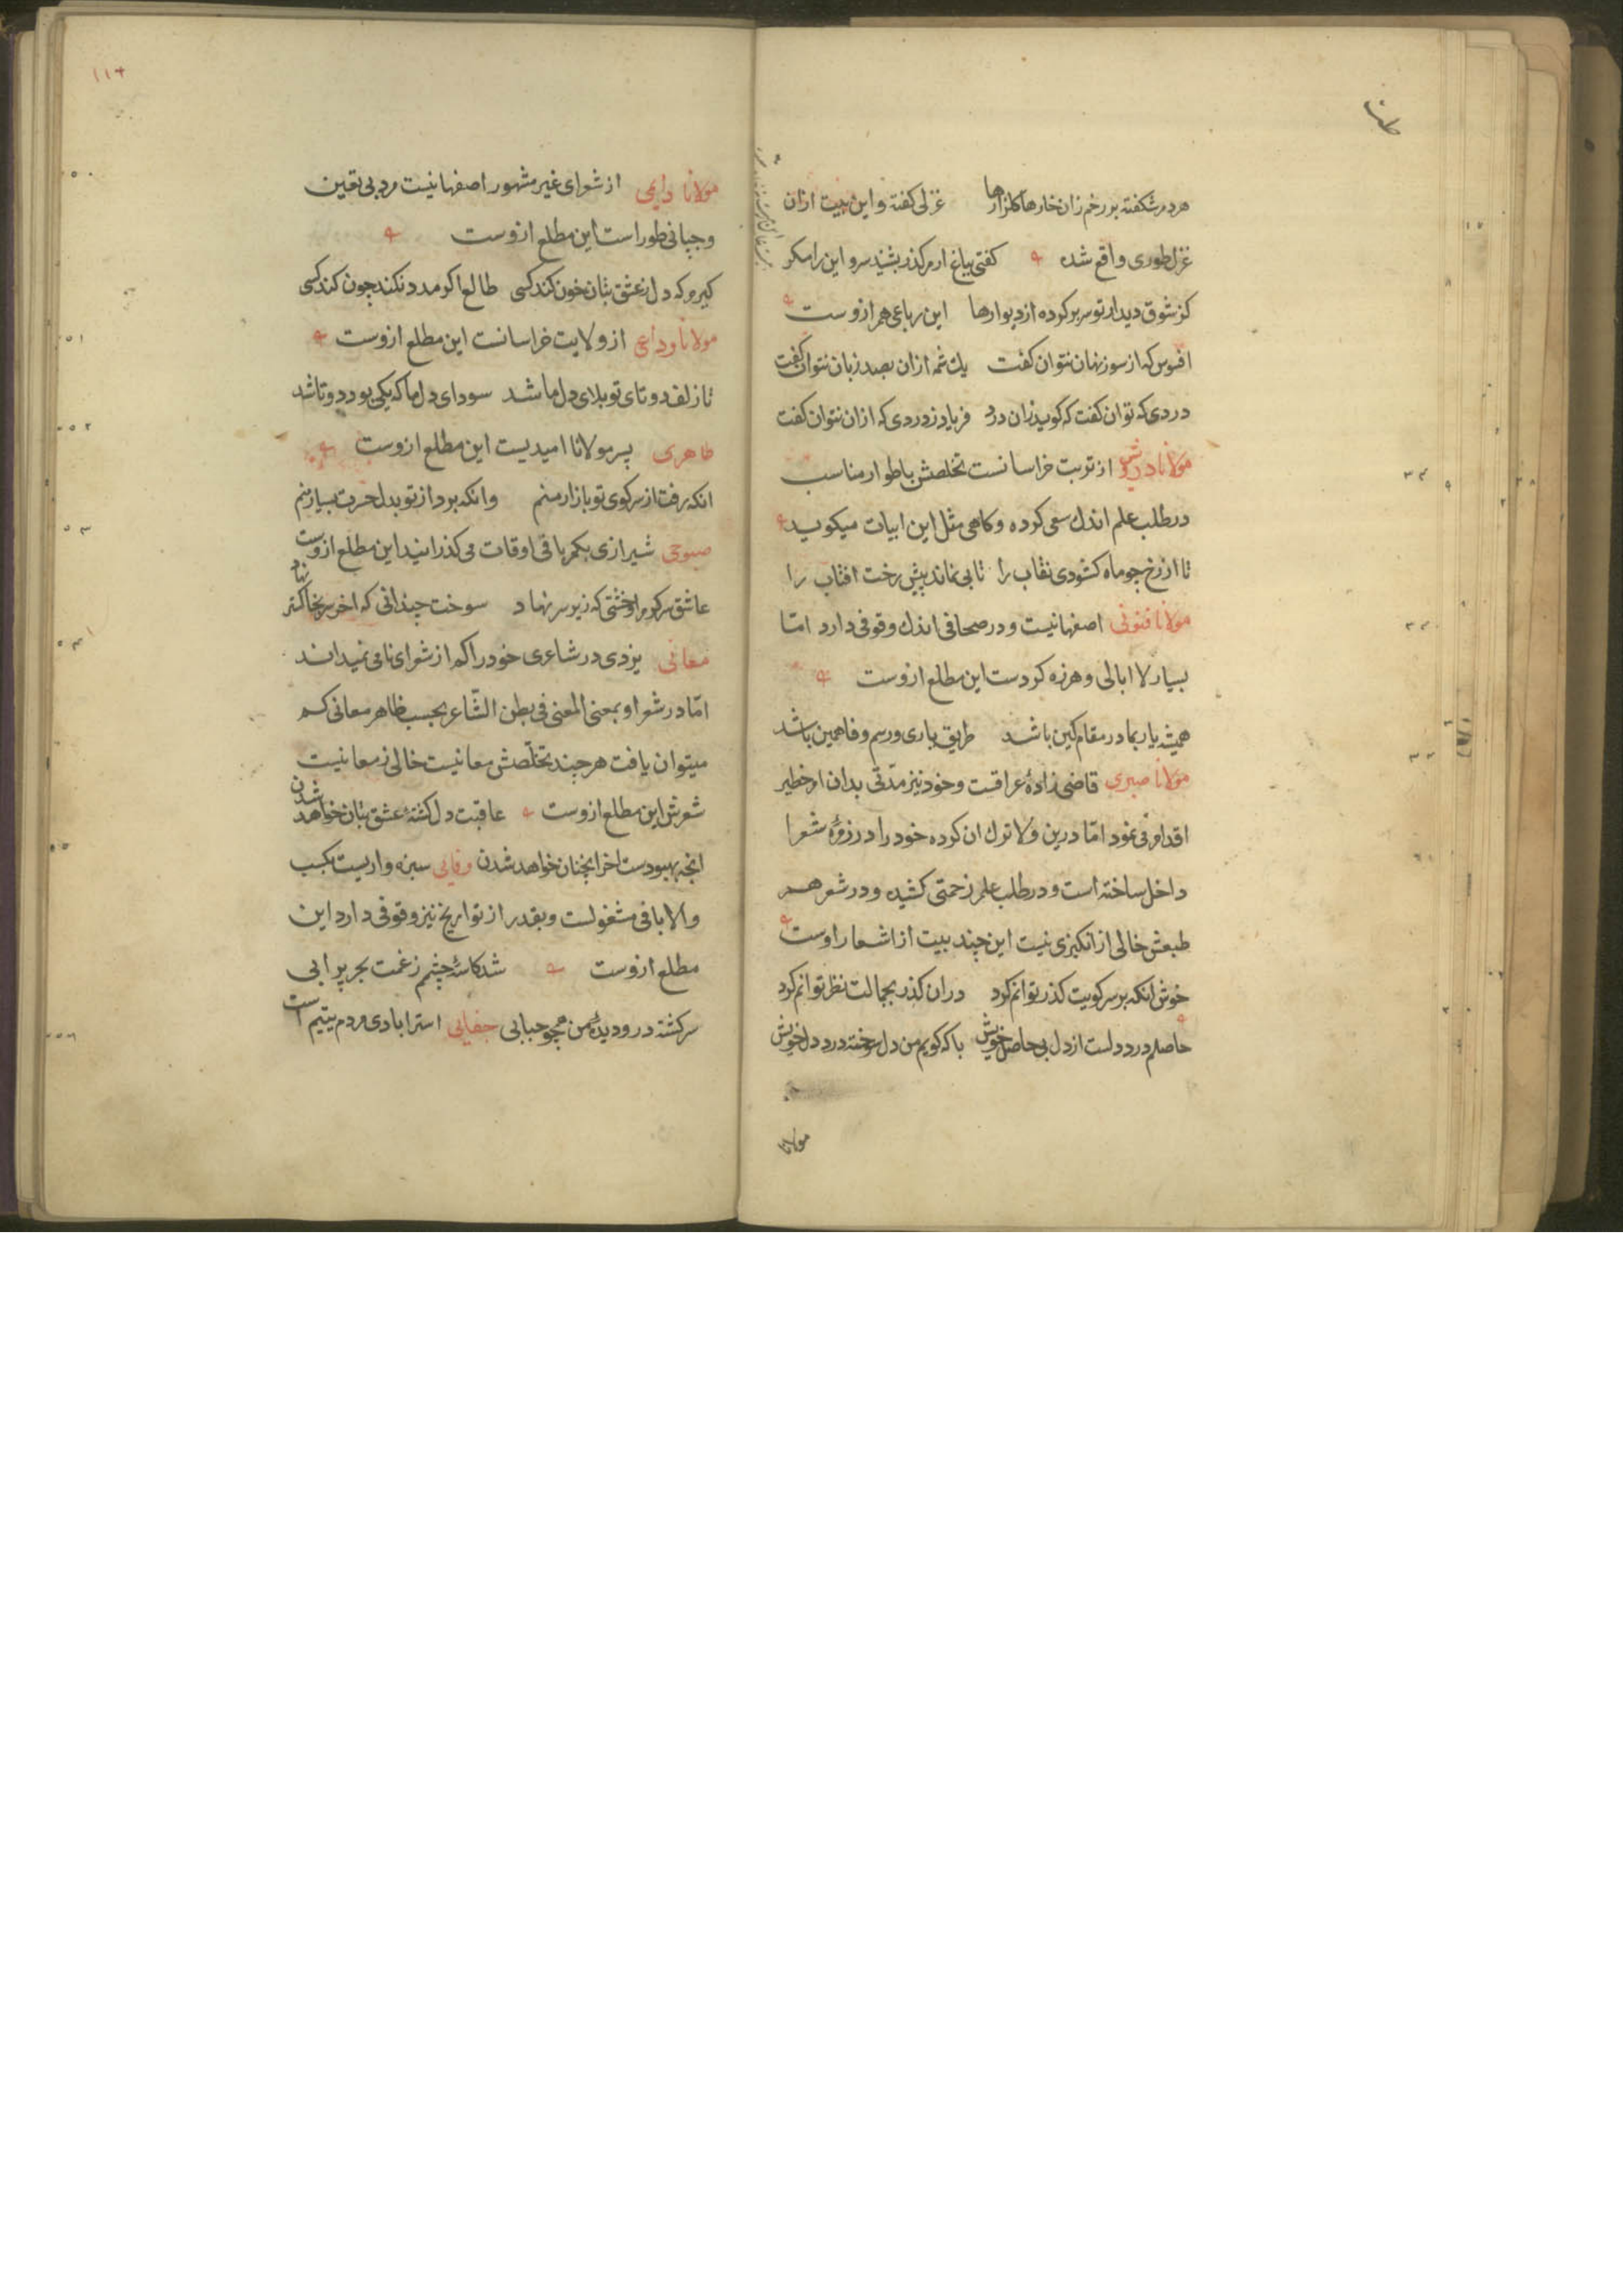 هردم شکفته بر رخم زان خارها کلزارها غزلی کفته و این بیت ازان
غزل طوری واقع شده کفتی بباغ ارم کذر بشنید سرو این را مکر
کز شوق دیدار تو سر بر کرده از دیوارها این رباعی هم ازوست
افسوس که از سوز نهان نتوان کفت یك شمه ازان بصد زبان نتوان کفت
دردی که توان کفت که کوید زان درد فریاد ز دردی که ازان نتوان کفت
مولانا درویش از تربت خراسانست تخلصش باطوار مناسب
در طلب علم اندك سعی کرده و کاهی مثل این ابیات میکوید
تا از رخ جو ماه کشودی نقاب را تابی نماند پیش رخت افتاب را
مولانا فنونی اصفهانیست و در صحافی اندك وقوفی دارد امّا
بسیار لا ابالی و هرزه کردست این مطلع ازوست
همیشه یار بما در مقام کین باشد طریق یاری و رسم وفا همین باشد
مولانا صبری قاضی زادهٔ عراقست و خود نیز مدّتی بدان امر خطیر
اقدام می نمود امّا درین ولا ترك ان کرده خود را در زمرهٔ شعرا
داخل ساخته است و در طلب علم زحمتی کشیده و در شعر هم
طبعش خالی از انکیزی نیست این چند بیت از اشعار اوست
خوش انکه بر سر کویت کذر توانم کرد دران کذر بجمالت نظر توانم کرد
حاصلم درد دلست از دل بی حاصل خویش با که کویم من دل سوخته درد دل خویش
مولانا
مولانا دایمی از شعرای غیر مشهور اصفهانیست مرد بی تعین
و جپانی طور است این مطلع ازوست
کیرم که دل ز عشق بتان خون کند کسی طالع اکر مدد نکند جون کند کسی
مولانا وداعی از ولایت خراسانست این مطلع ازوست
تا زلف دوتای تو بلای دل ما شد سودای دل ما که یکی بود دوتا شد
طاهری پسر مولانا امیدیست این مطلع ازوست
انکه رفت از سر کوی تو بازار منم وانکه برد از تو بدل حسرت بسیار منم
صبوحی شیرازی بکمر بافی اوقات می کذرانید این مطلع ازوست
عاشق سرکرم او خشتی که زیر سر نهاد سوخت چندانی که اخر سر بخاکستر نهاد
معانی یزدی در شاعری خود را کم از شعرای نامی نمیداند
امّا در شعر او بمعنی المعنی فی بطن الشّاعر بحسب ظاهر معانی کم
میتوان یافت هرجند تخلّصش معانیست خالی ز معانیست
شعرش این مطلع ازوست عاقبت دل کشتهٔ عشق بتان خواهد شدن
انجه بهبودست اخر انجنان خواهد شدن وفایی سبزه واریست بکسب
والا بافی مشغولست و بقدر از تواریخ نیز وقوفی دارد این
مطلع ازوست شد کاسهٔ چشم ز غمت بحر پر ابی
سرکشته درو دیدهٔ من همچو حبابی جفایی استرابادی مردم یتیم است